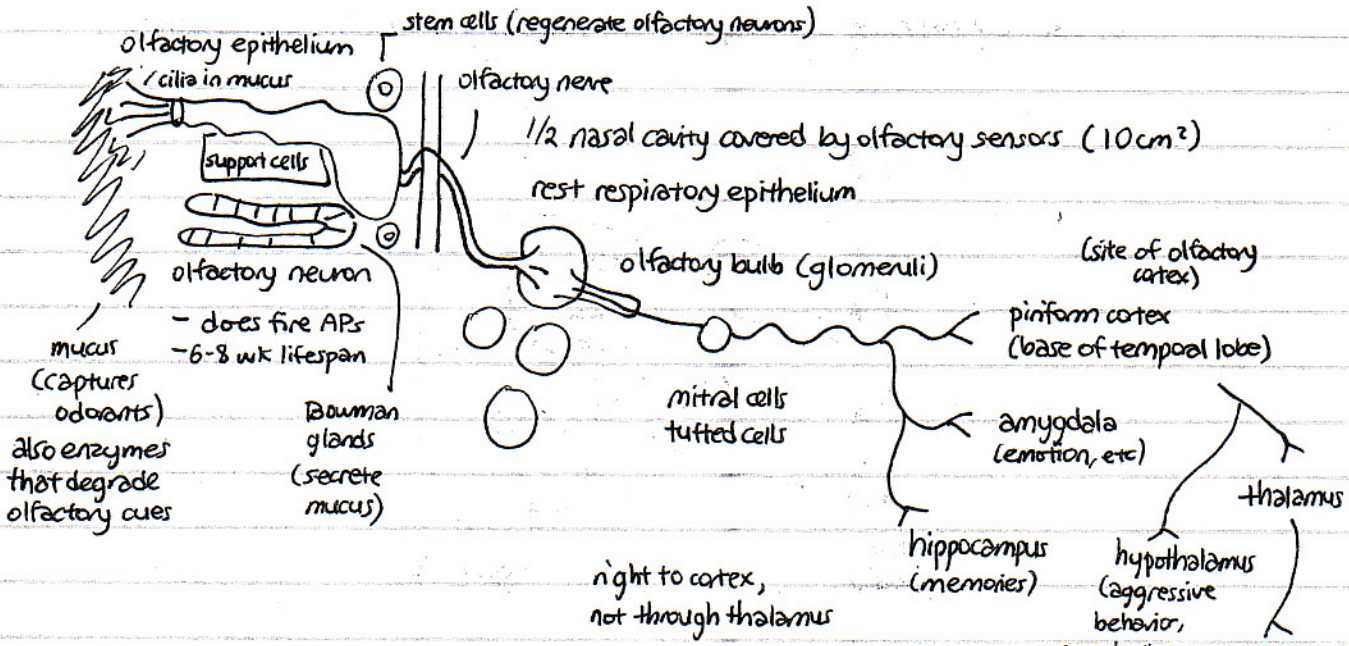 stem cells (regenerate olfactory neurons)
olfactory epithelium
cilia in mucus
olfactory nerve
1/2 nasal cavity covered by olfactory sensors (10cm²)
support cells
rest respiratory epithelium
olfactory bulb (glomeruli)
(site of olfactory
cortex)
olfactory neuron
- does fire APs
- 6-8 wk lifespan
piriform cortex
(base of temporal lobe)
mucus
(captures
odorants)
also enzymes
that degrade
olfactory cues
Bowman
glands
(secrete
mucus)
mitral cells
tufted cells
amygdala
(emotion, etc)
thalamus
hippocampus
(memories)
hypothalamus
(aggressive
behavior,
right to cortex,
not through thalamus